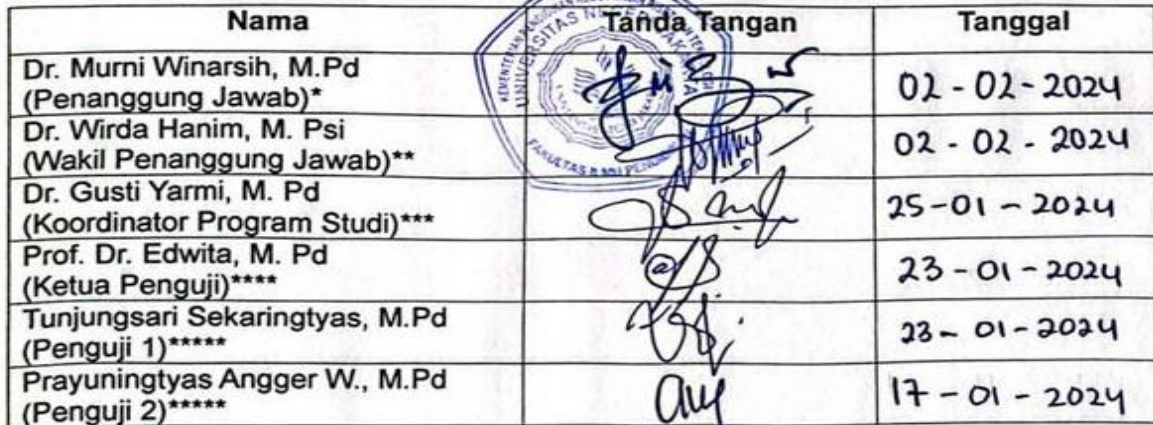 Nama Tanda Tangan Tanggal
Dr. Murni Winarsih, M.Pd
(Penanggung Jawab)* 02 - 02 - 2024
Dr. Wirda Hanim, M. Psi
(Wakil Penanggung Jawab)** 02 - 02 - 2024
Dr. Gusti Yarmi, M. Pd
(Koordinator Program Studi)*** 25 - 01 - 2024
Prof. Dr. Edwita, M. Pd
(Ketua Penguji)**** 23 - 01 - 2024
Tunjungsari Sekaringtyas, M.Pd
(Penguji 1)***** 23 - 01 - 2024
Prayuningtyas Angger W., M.Pd
(Penguji 2)***** 17 - 01 - 2024
UNIVERSITAS NEGERI JAKARTA
FAKULTAS ILMU PENDIDIKAN